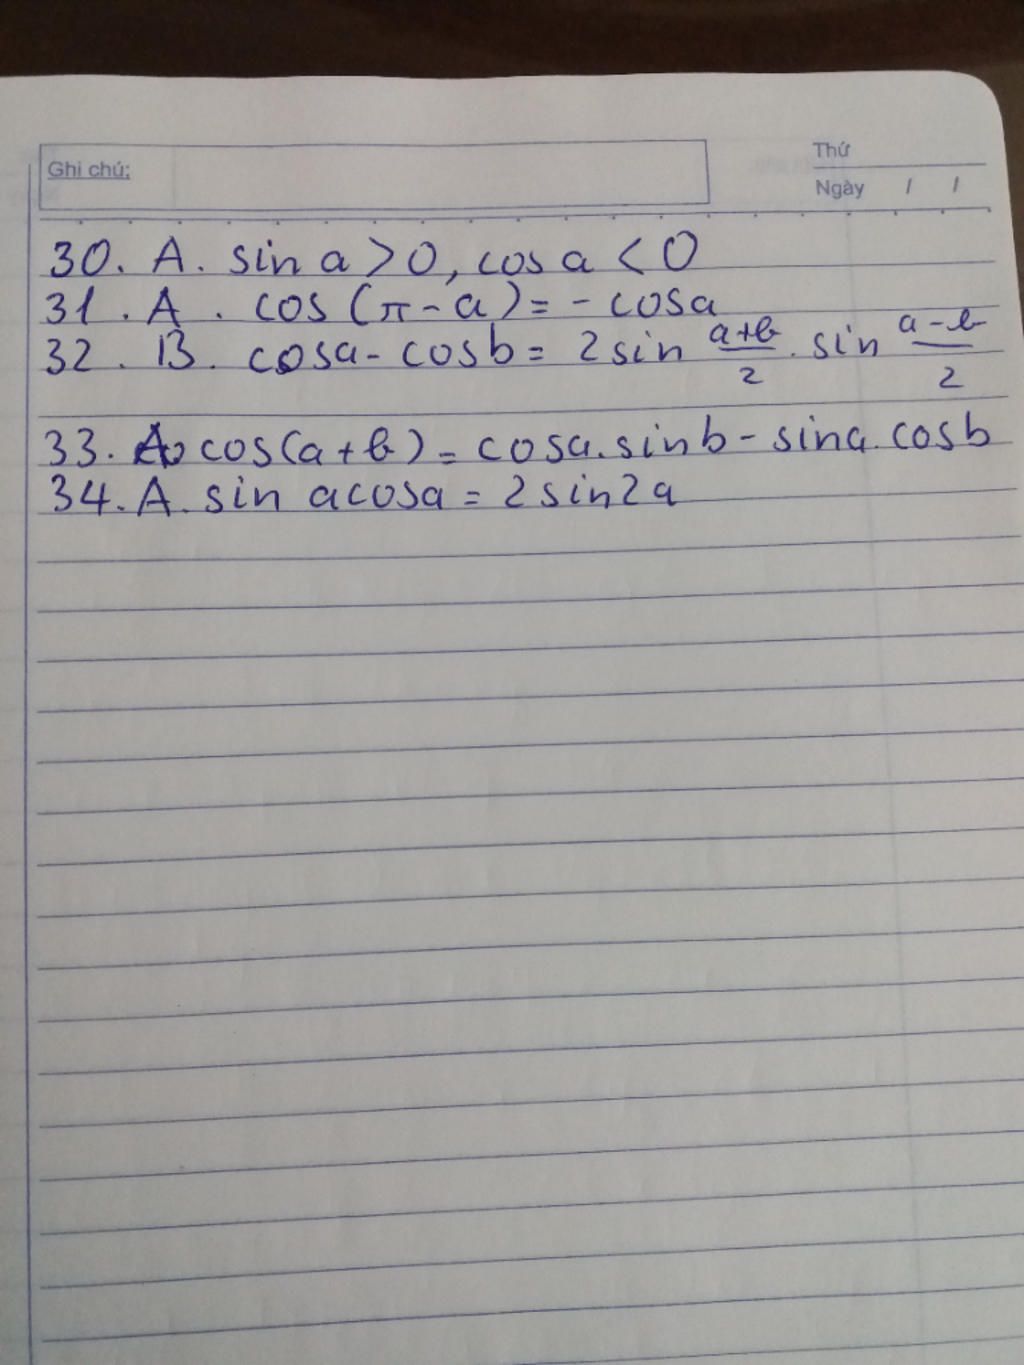 Ghi chú:
Thứ
Ngày / /
30. A. sin a > 0, cos a < 0
31. A. cos (π - a) = - cosa
32. B. cosa - cosb = 2 sin (a+b)/2 . sin (a-b)/2
33. A. cos(a+b) = cosa. sinb - sina. cosb
34. A. sin acosa = 2 sin2a